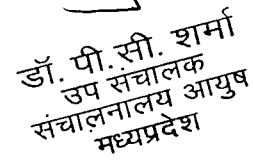 डॉ. पी. सी. शर्मा
उप संचालक
संचाल़नालय आयुष
मध्यप्रदेश